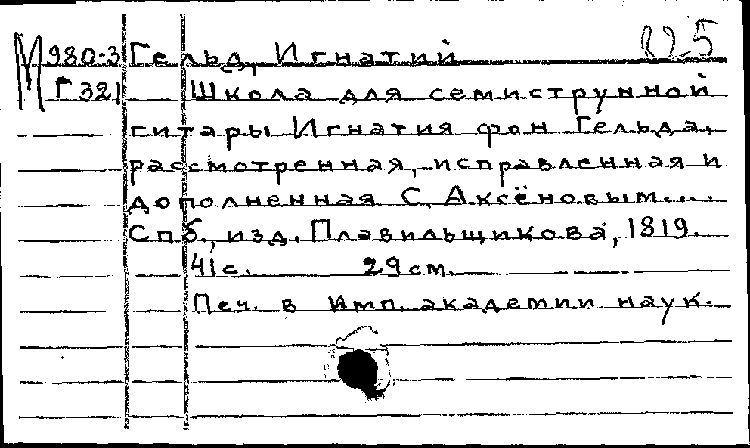 М 980-3 Гельд, Игнатий 825
Г 321 Школа для семиструнной
гитары Игнатия фон Гельда,
рассмотренная, исправленная и
дополненная С. Аксёновым....
Спб., изд. Плавильщикова, 1819.
41 с. 29 см.
Печ. в Имп. академии наук.